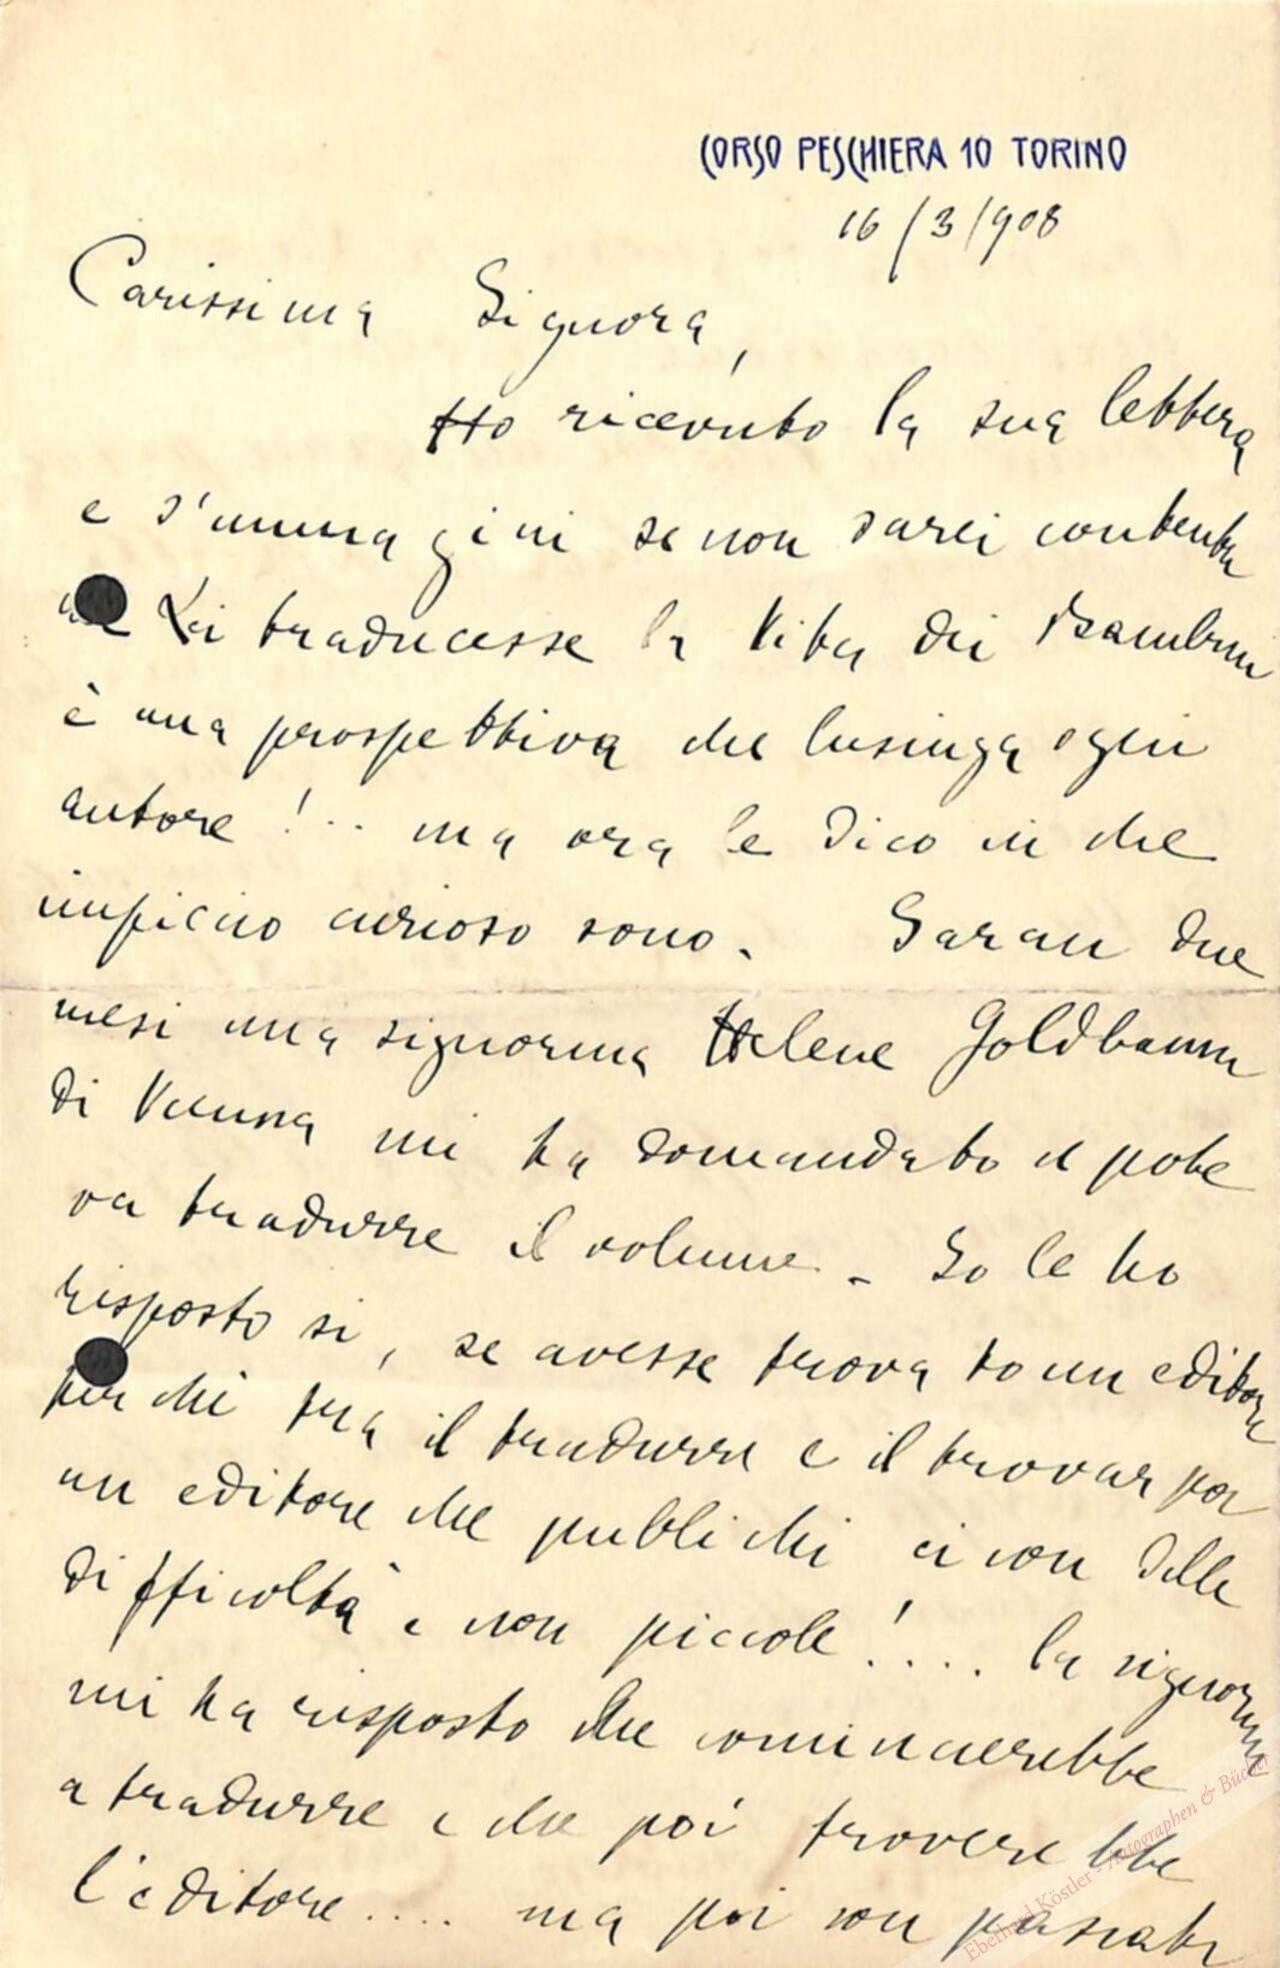 CORSO PESCHIERA 10 TORINO
16/3/908
Carissima Signora,
Ho ricevuto la sua lettera
e s'immagini se non sarei contenta
Lei traducesse la Vita dei Bambini
è una prospettiva che lusinga ogni
autore!.. ma ora le dico in che
impiccio curioso sono. Saran due
mesi una signorina Helene Goldbaum
di Vienna mi ha domandato se pote
va tradurre il volume. Io le ho
risposto si, se avesse trovato un editore
perchi fra il tradurre e il trovar poi
un editore che publichi ci son delle
difficoltà e non piccole!.... la signorina
mi ha risposto che comincierebbe
a tradurre e che poi troverebbe
l'editore.... ma poi son passati
Eberhard Köstler - Autographen & Bücher